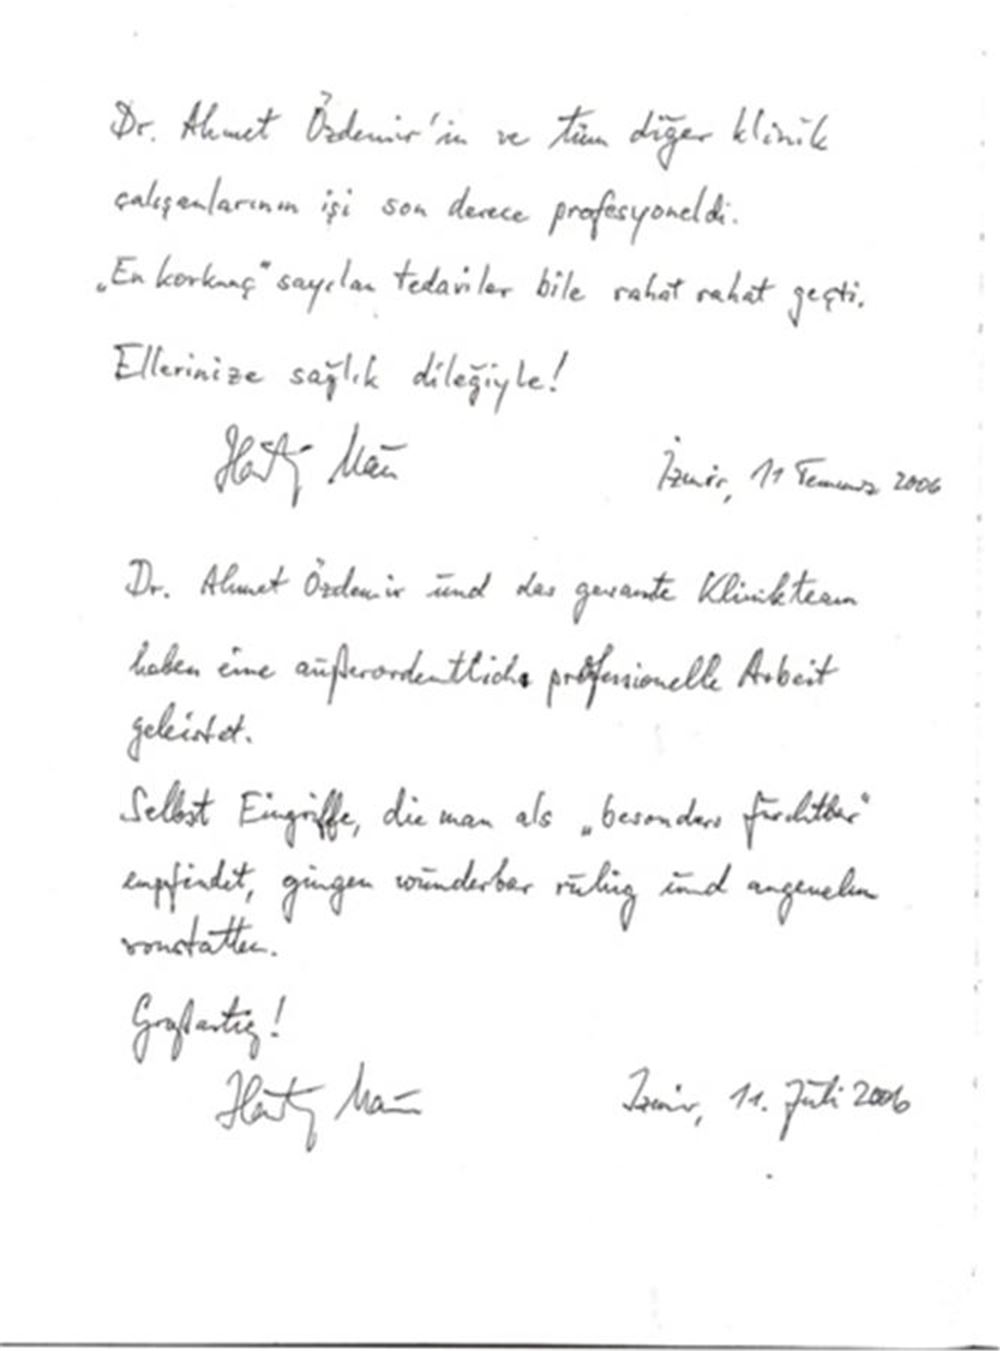 Dr. Ahmet Özdemir'in ve tüm diğer klinik
çalışanlarının işi son derece profesyoneldi.
„En korkunç“ sayılan tedaviler bile rahat rahat geçti.
Ellerinize sağlık dileğiyle!
İzmir, 11 Temmuz 2006
Dr. Ahmet Özdemir und das gesamte Klinikteam
haben eine außerordentlich professionelle Arbeit
geleistet.
Selbst Eingriffe, die man als „besonders furchtbar“
empfindet, gingen wunderbar ruhig und angenehm
vonstatten.
Großartig!
Izmir, 11. Juli 2006